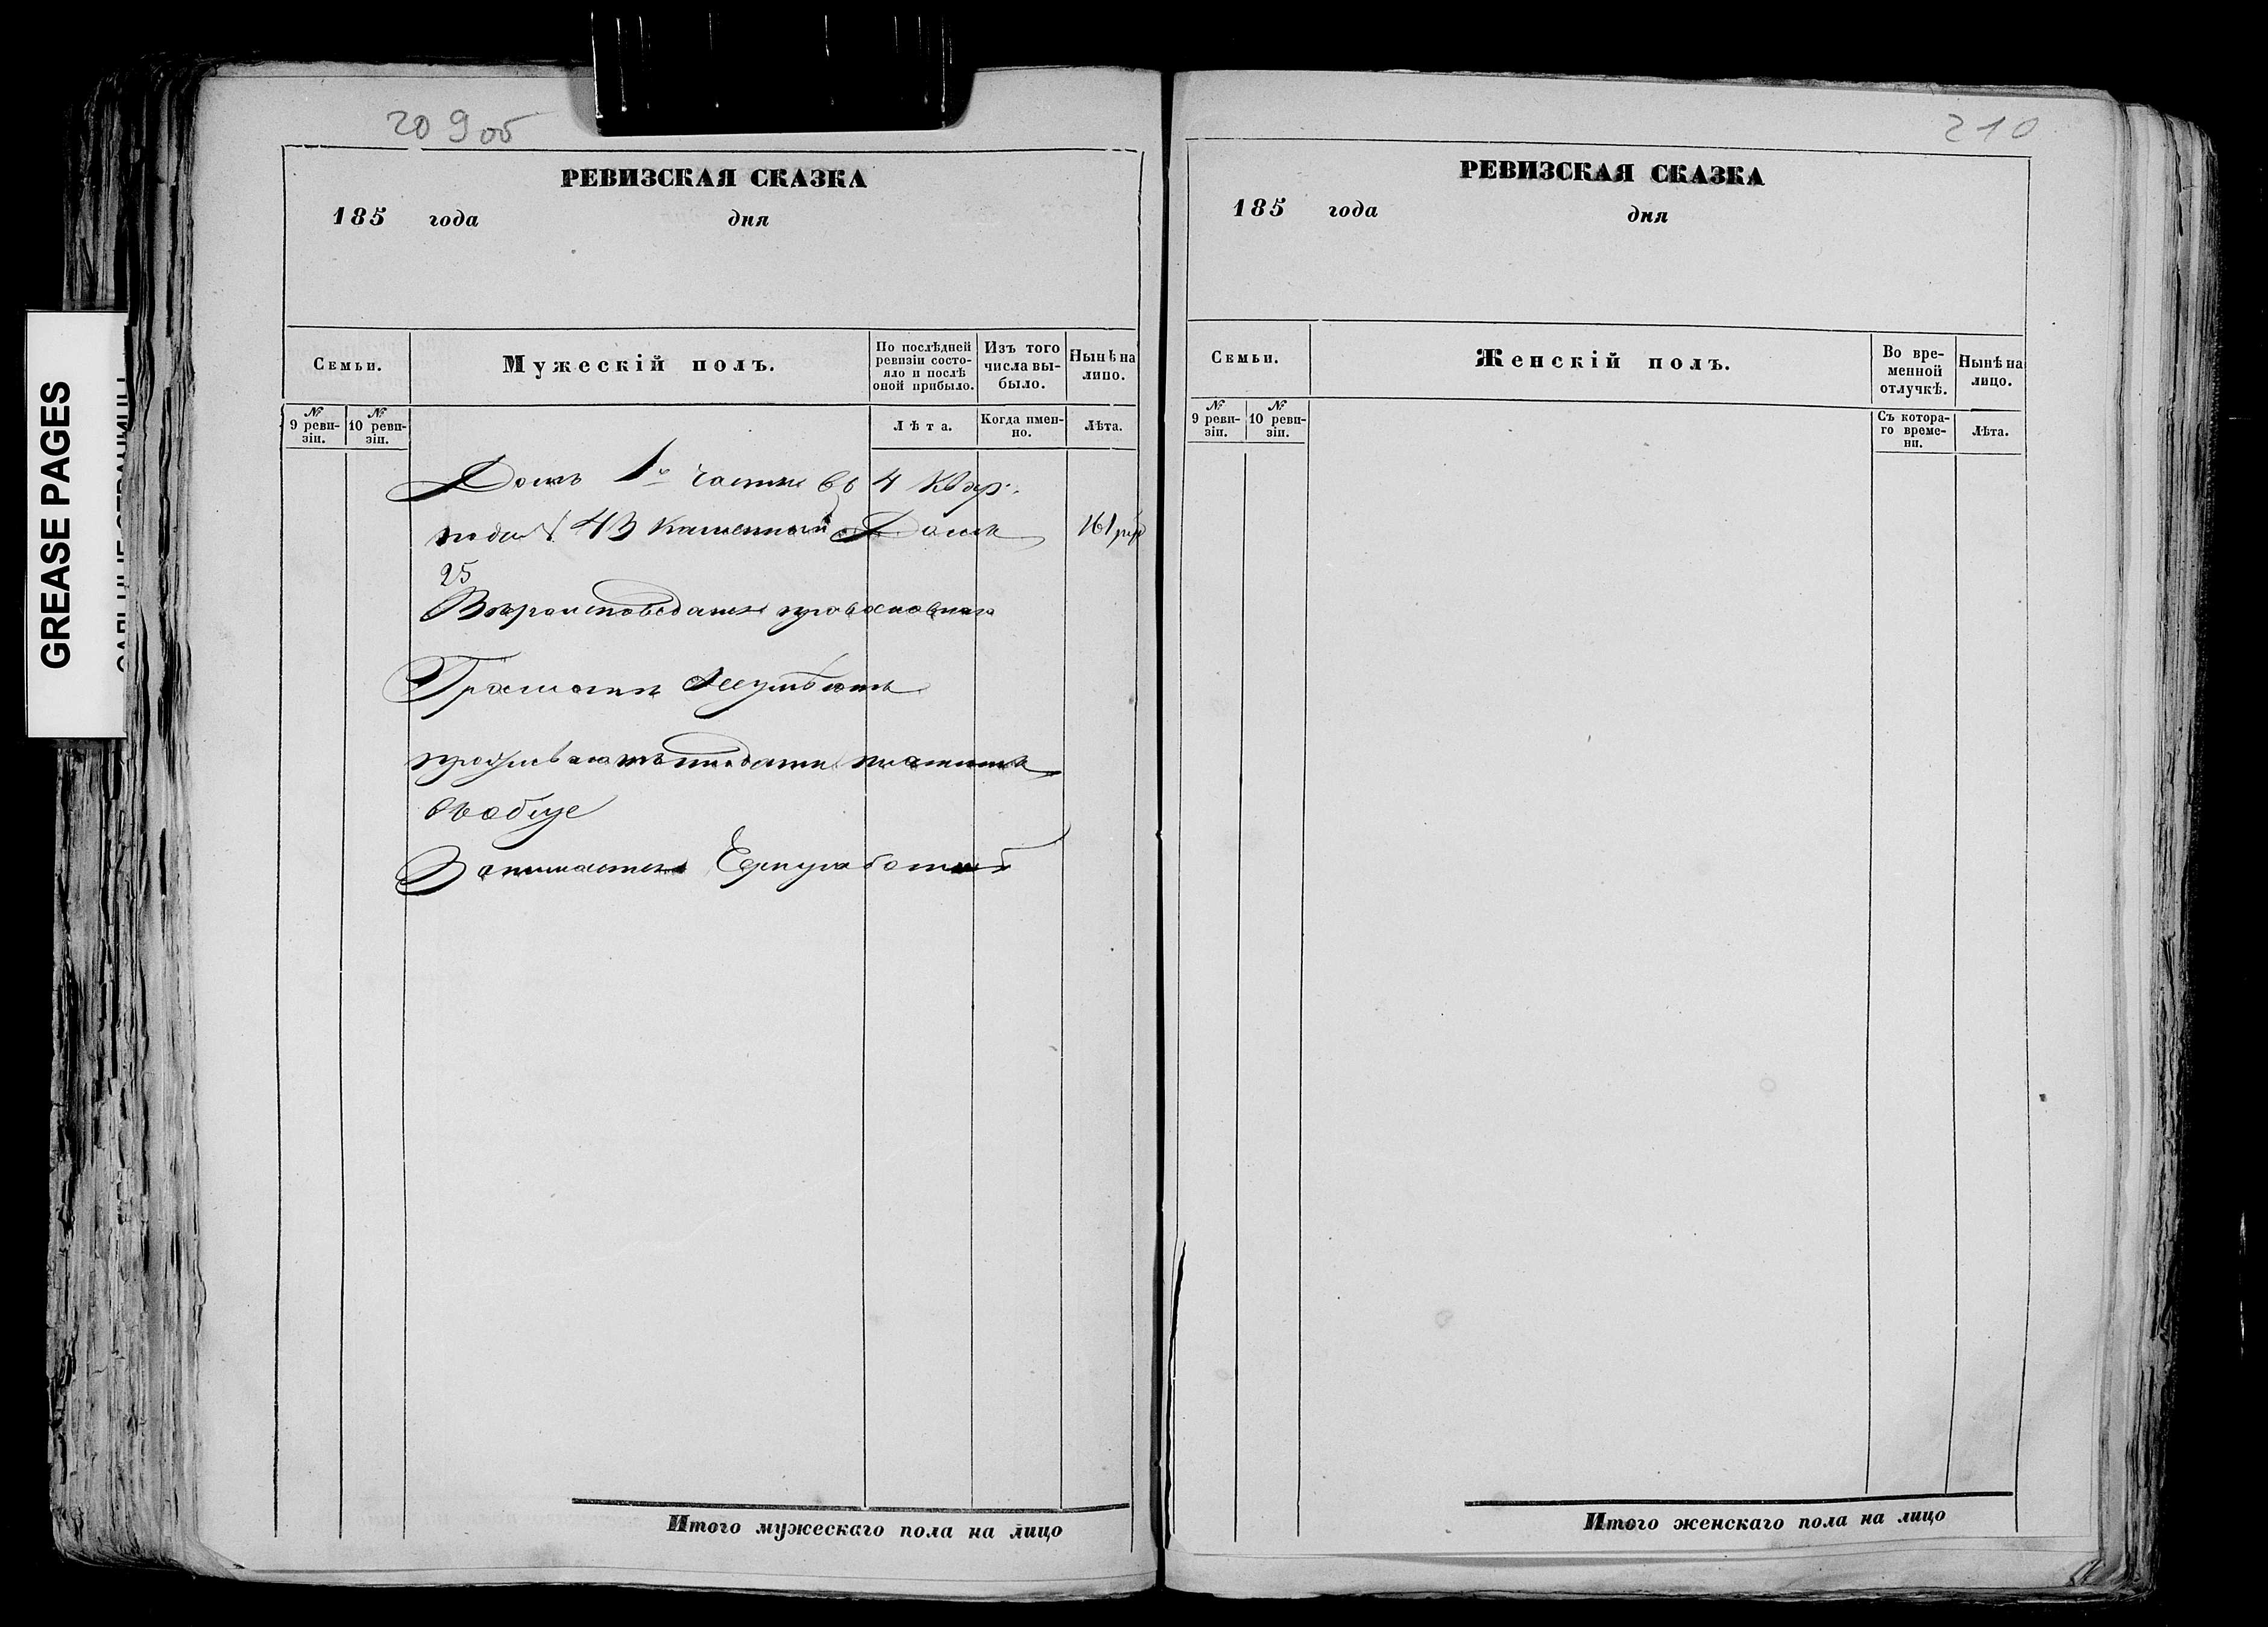 209об
РЕВИЗСКАЯ СКАЗКА
185 года дня
Семьи.
Мужескій полъ.
По послѣдней ревизіи состояло и послѣ оной прибыло.
Изъ того числа выбыло.
Нынѣ на лицо.
№ 9 ревизіи.
№ 10 ревизіи.
Лѣта.
Когда именно.
Лѣта.
Домъ 1й части въ 4 Квар.
подъ № 43 каменный Домъ 161 р
25
Вѣроисповеданія православнаго
Грамоти
проживаютъ подати платитъ
въобще
Занимается
Итого мужескаго пола на лицо
210
РЕВИЗСКАЯ СКАЗКА
185 года дня
Семьи.
Женскій полъ.
Во временной отлучкѣ.
Нынѣ на лицо.
№ 9 ревизіи.
№ 10 ревизіи.
Съ котораго времени.
Лѣта.
Итого женскаго пола на лицо
GREASE PAGES